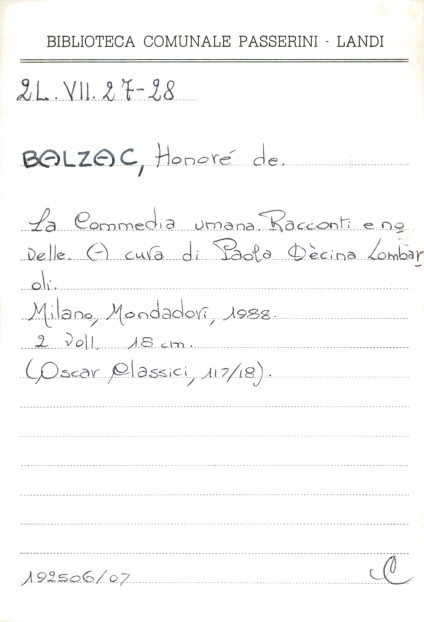 BIBLIOTECA COMUNALE PASSERINI - LANDI
2L.VII.27-28
BALZAC, Honoré de.
La Commedia umana. Racconti e no
velle. (-) cura di Paola Dècina Lombar
oli.
Milano, Mondadori, 1988.
2 voll. 18 cm.
(Oscar Classici, 117/18).
192506/07
C